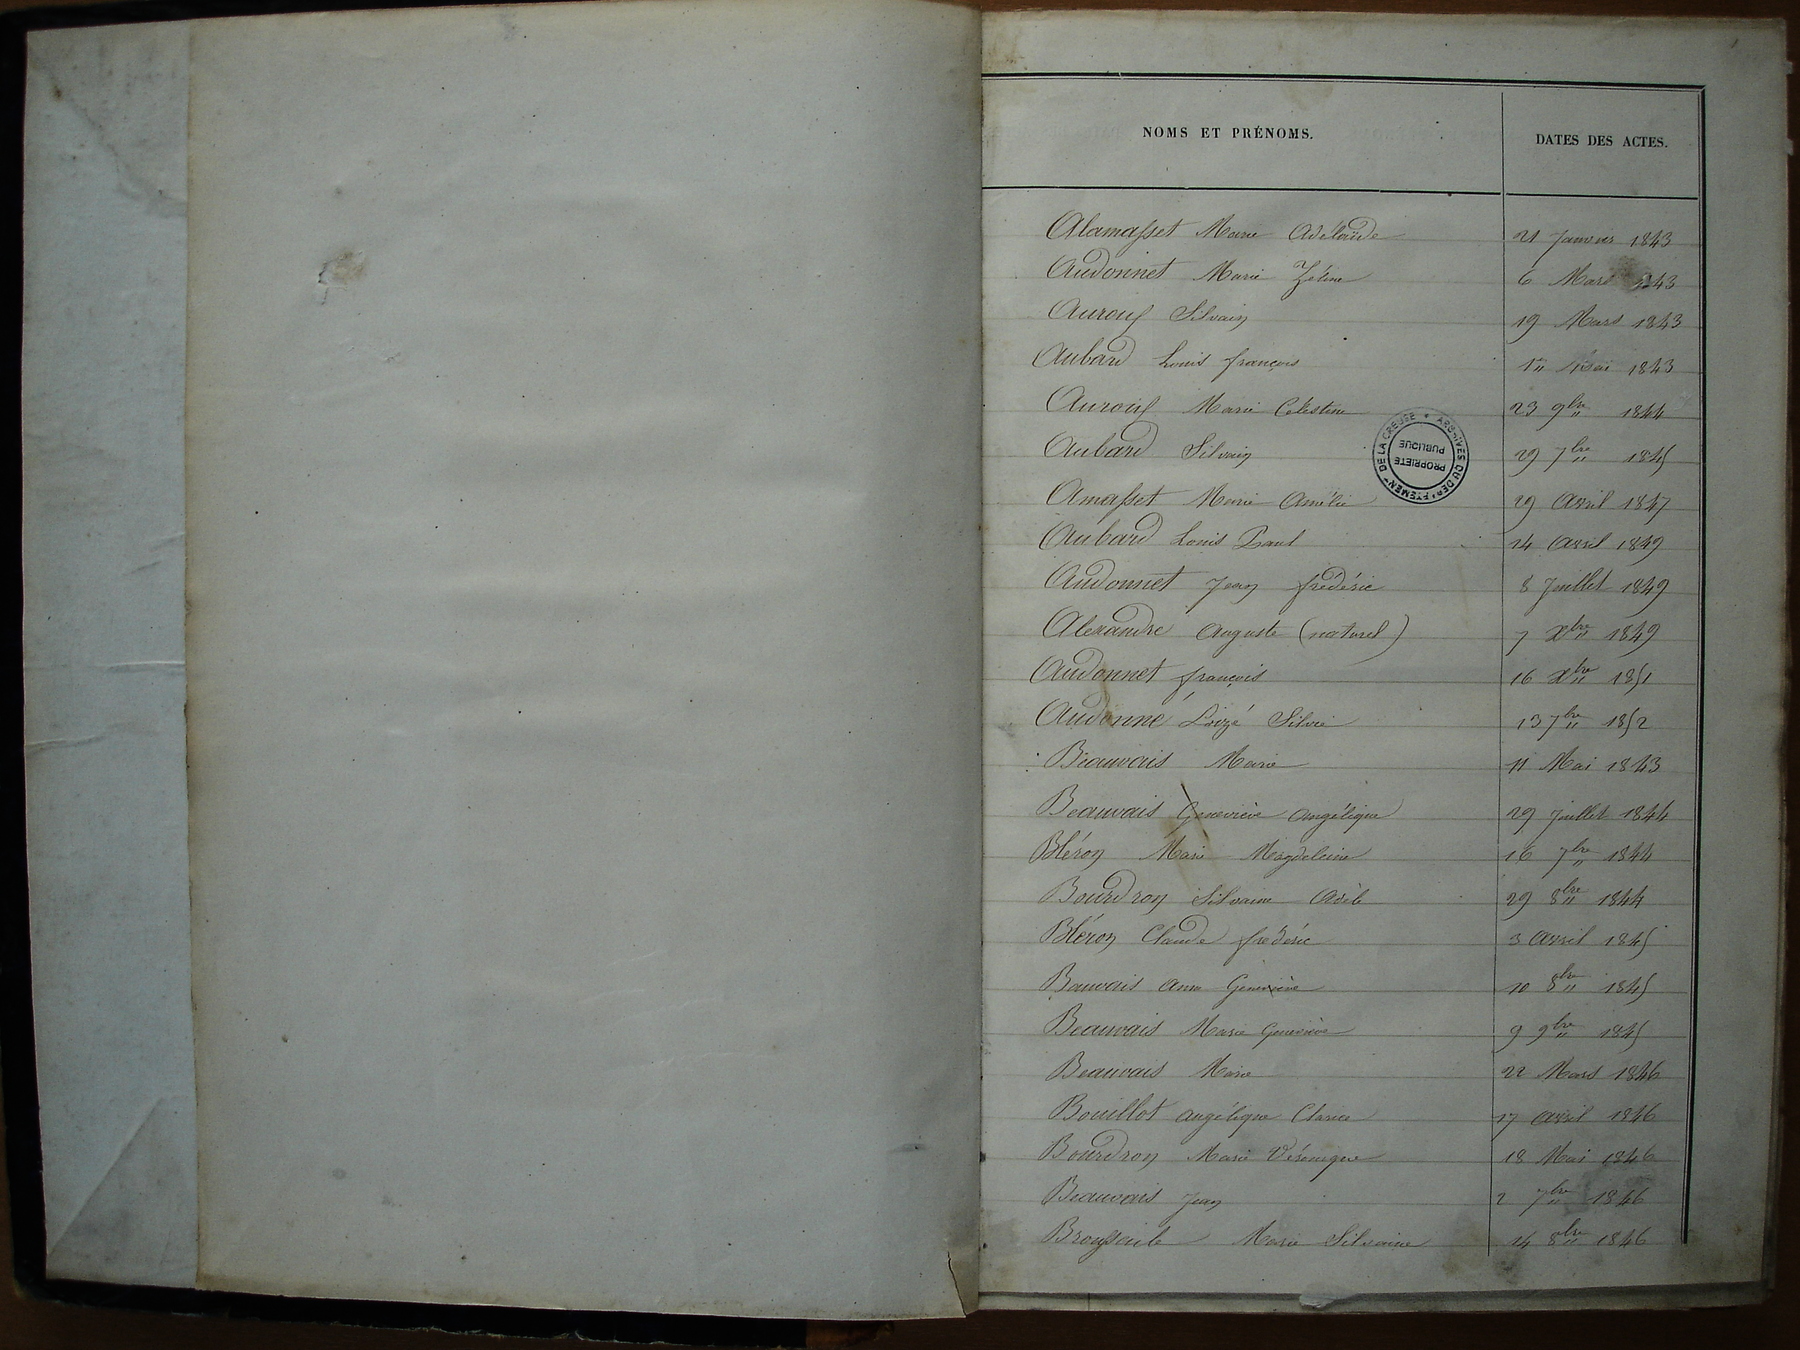 NOMS ET PRÉNOMS. DATES DES ACTES.
Alamasset Marie Adélaïde 21 Janvier 1843
Audonnet Marie Zéline 6 Mars 1843
Aurouf Silvain 19 Mars 1843
Aubard Louis françois 17 Mai 1843
Aurouf Marie Célestine 23 9bre 1844
Aubard Silvain 29 7bre 1845
Amasset Marie Amélie 29 Avril 1847
Aubard Louis Paul 24 Avril 1849
Audonnet Jean frédéric 8 Juillet 1849
Alexandre Auguste (naturel) 7 Xbre 1849
Audonnet françois 16 Xbre 1851
Audonné Silvie 13 7bre 1852
Beauvais Marie 11 Mai 1843
Beauvais Geneviève Angélique 29 Juillet 1844
Bléron Marie Magdeleine 16 7bre 1844
Bourdron Silvaine Adèle 29 8bre 1844
Bléron Claude frédéric 3 Avril 1845
Bauvais Anne Geneviève 10 8bre 1845
Beauvais Marie Geneviève 9 9bre 1845
Beauvais Marie 22 Mars 1846
Bouillot Angélique Clarice 17 Avril 1846
Bourdron Marie Véronique 18 Mai 1846
Beauvais Jean 2 7bre 1846
Marie Silvaine 14 8bre 1846
ARCHIVES DU DEPARTEMENT DE LA CREUSE
PROPRIETE
PUBLIQUE